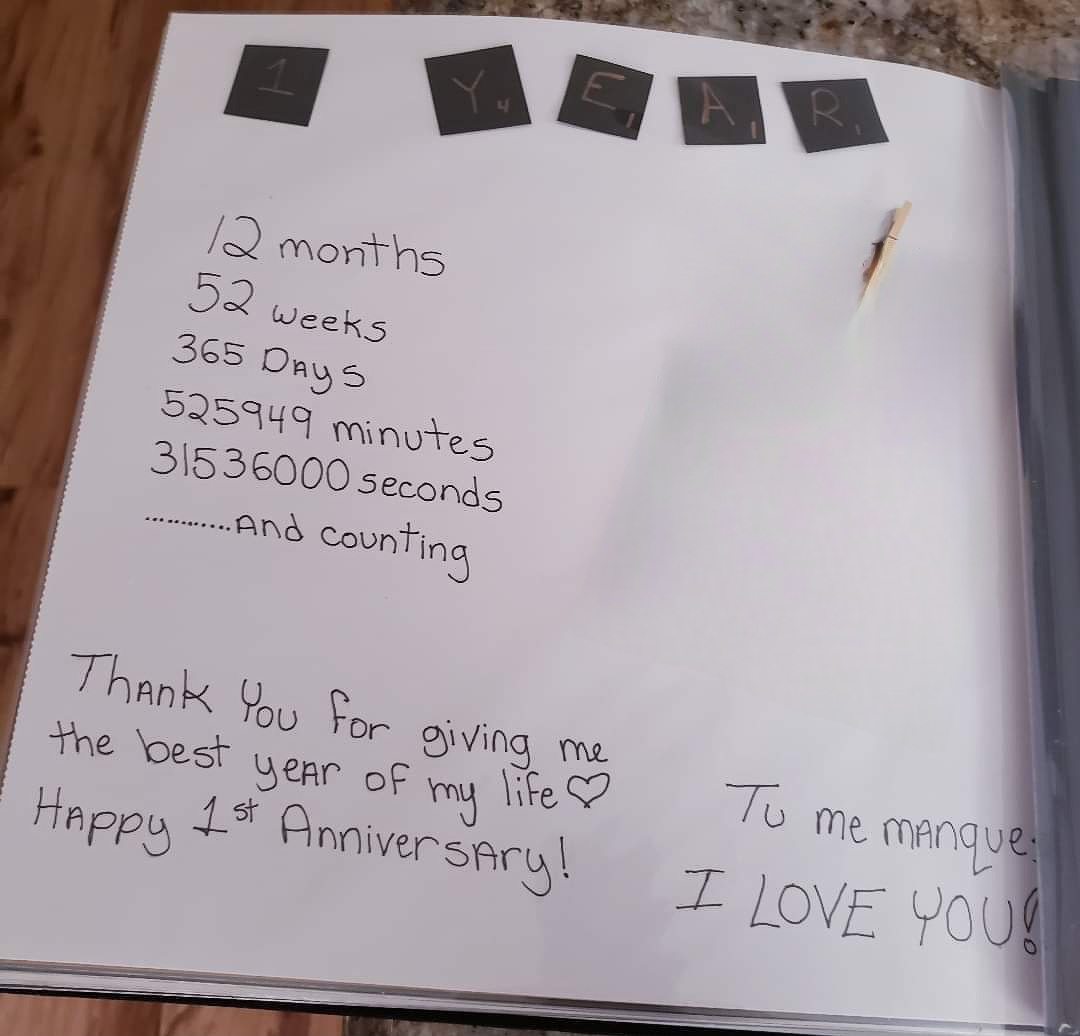 1 YEAR
12 months
52 weeks
365 Days
525949 minutes
31536000 seconds
............And counting
Thank You for giving me
the best year of my life♡
Happy 1st Anniversary!
Tu me manques
I LOVE YOU!